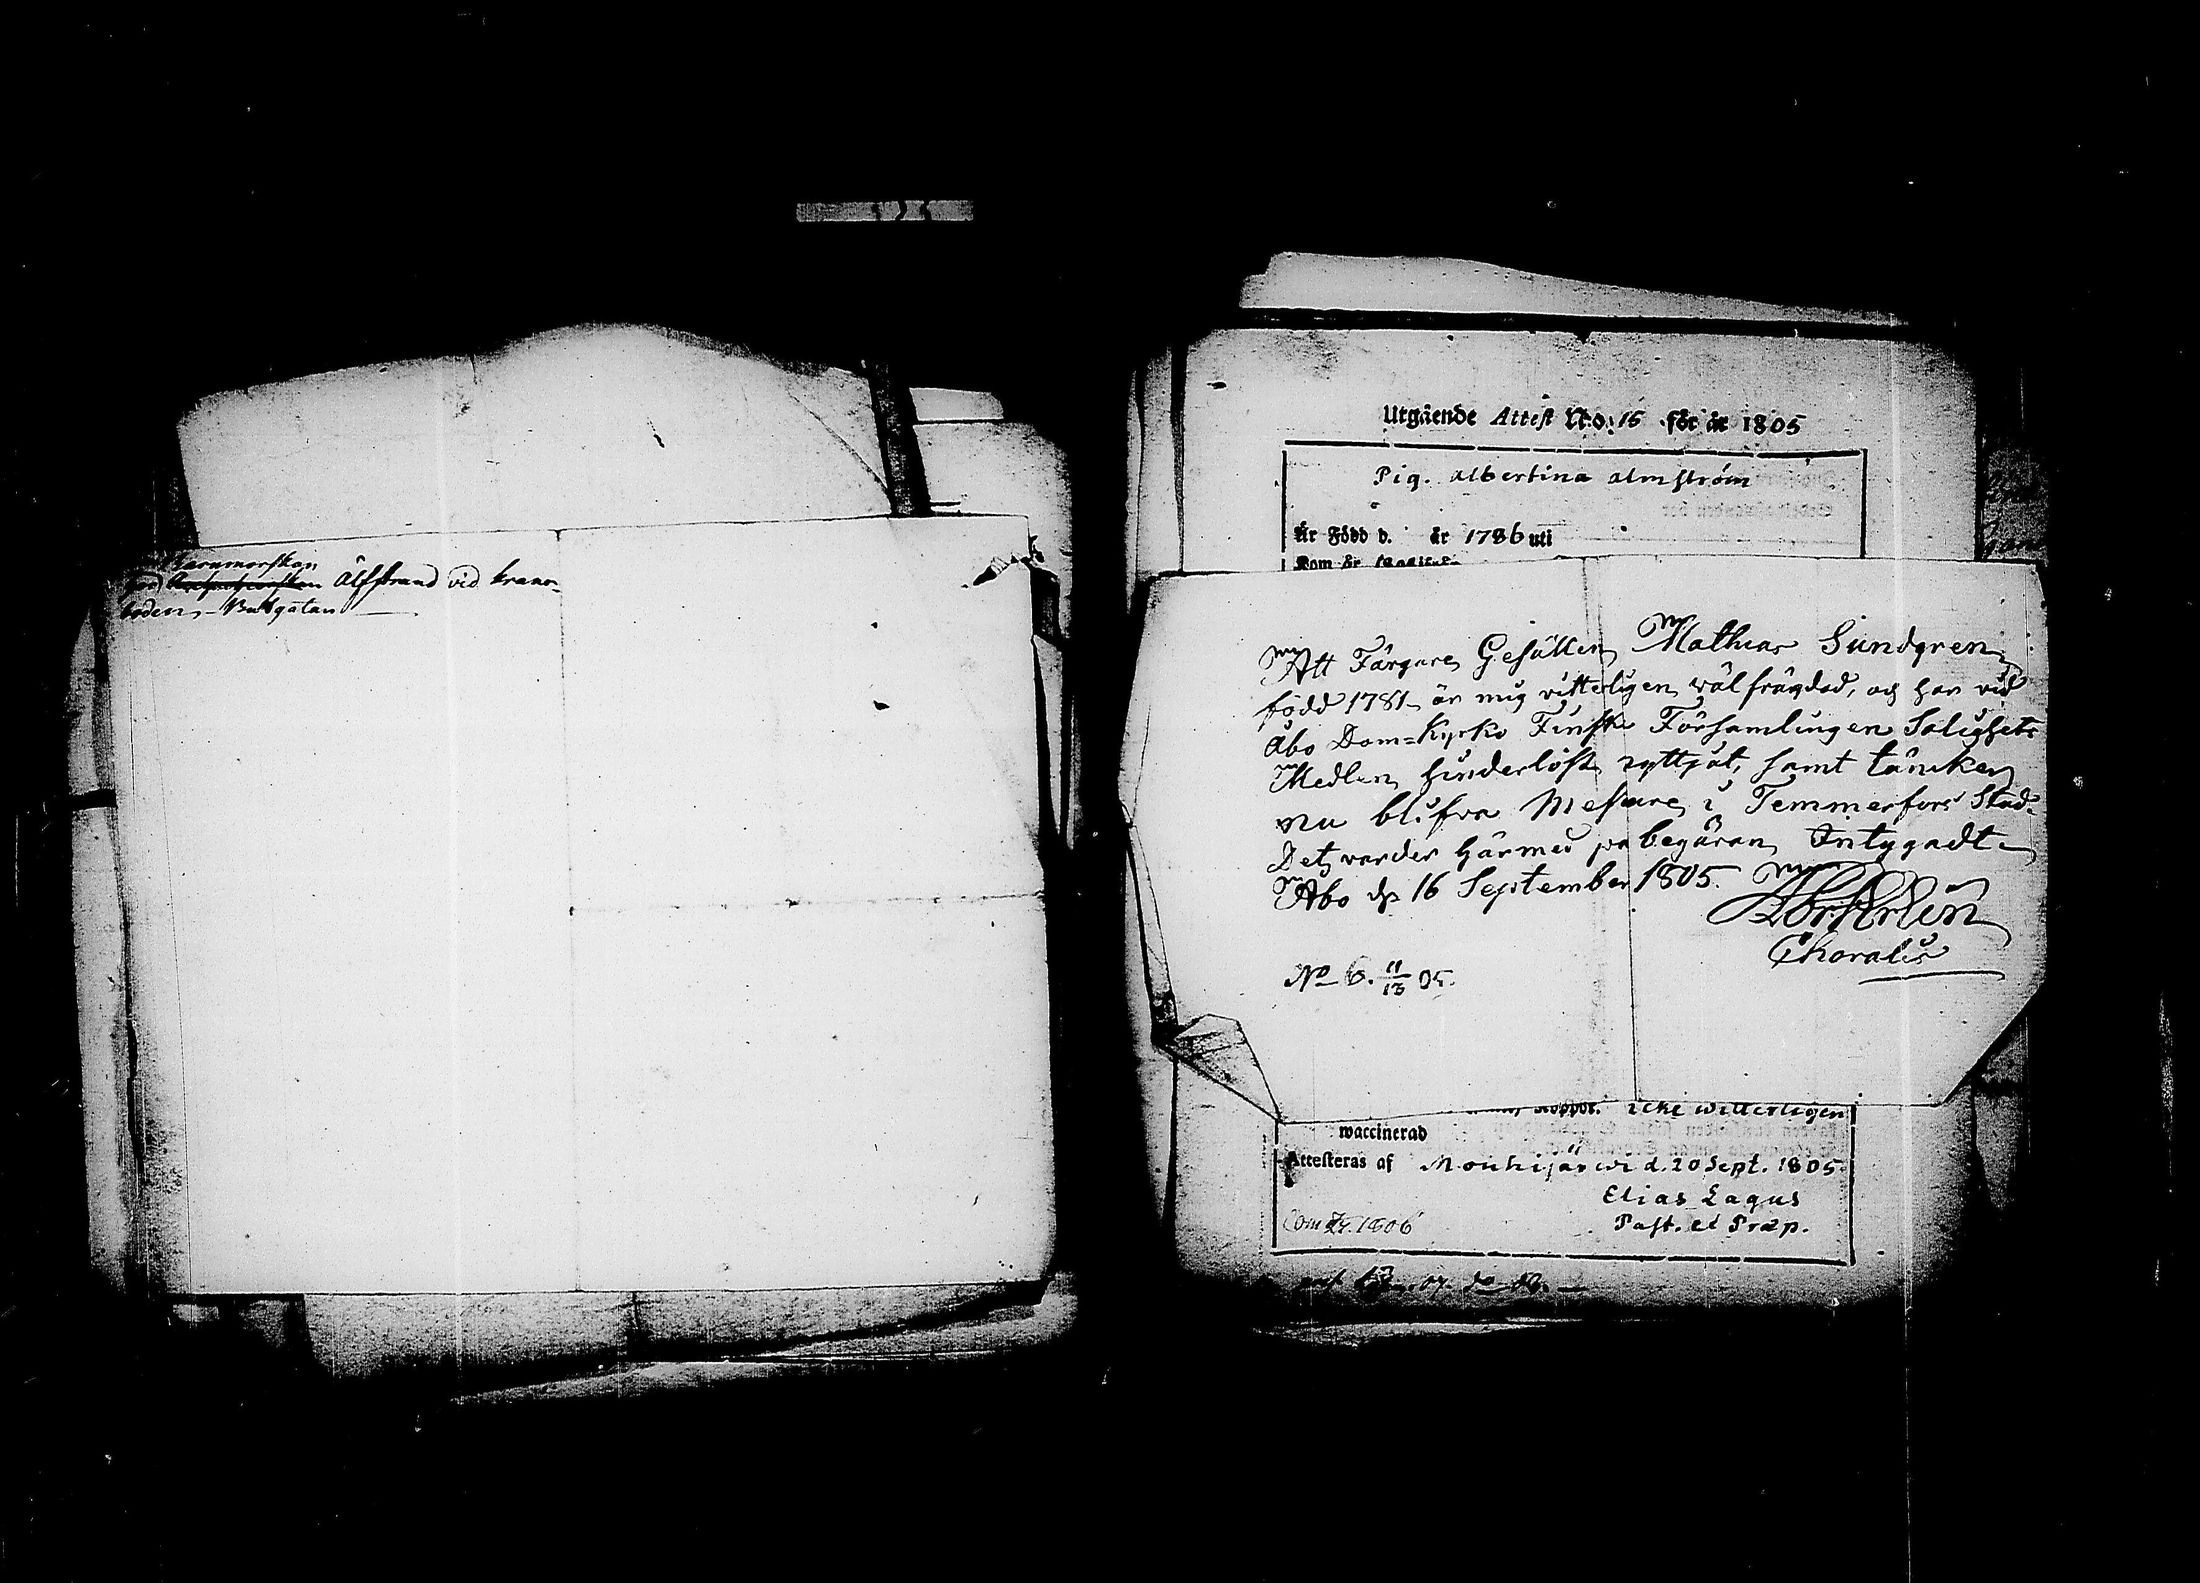 Barnmorskan
Älfstrand vid krano-
boden
Utgående Attest N:o. 15 för år 1805
Pig. Albertina Almström
Är Född d. år 1786 uti
Kom år
Att Färgare Gesällen Mathias Sundgren
född 1781 är mig vitterligen väl frägdad, och har vid
Åbo Dom=Kyrko Finska Församlingen Salighets
Medlen hinderlöst nyttjat, samt täncker
nu blifva Mestare i Temmerfors Stad.
Det varder härmed på begäran Intygadt
Åbo d. 16 September 1805.
Choralis
No 6. 11/13 05.
Koppor. icke witterligen
waccinerad
Attesteras af Mouhijärwi d. 20 Sept. 1805.
Elias Lagus
Past. et Præp.
1806